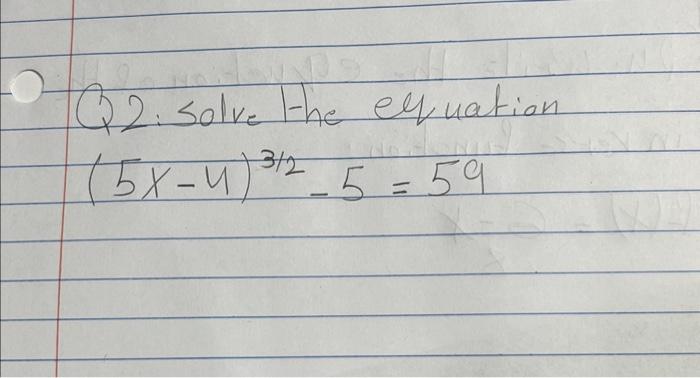 Q2. solve the equation
(5x-4)^3/2 - 5 = 59